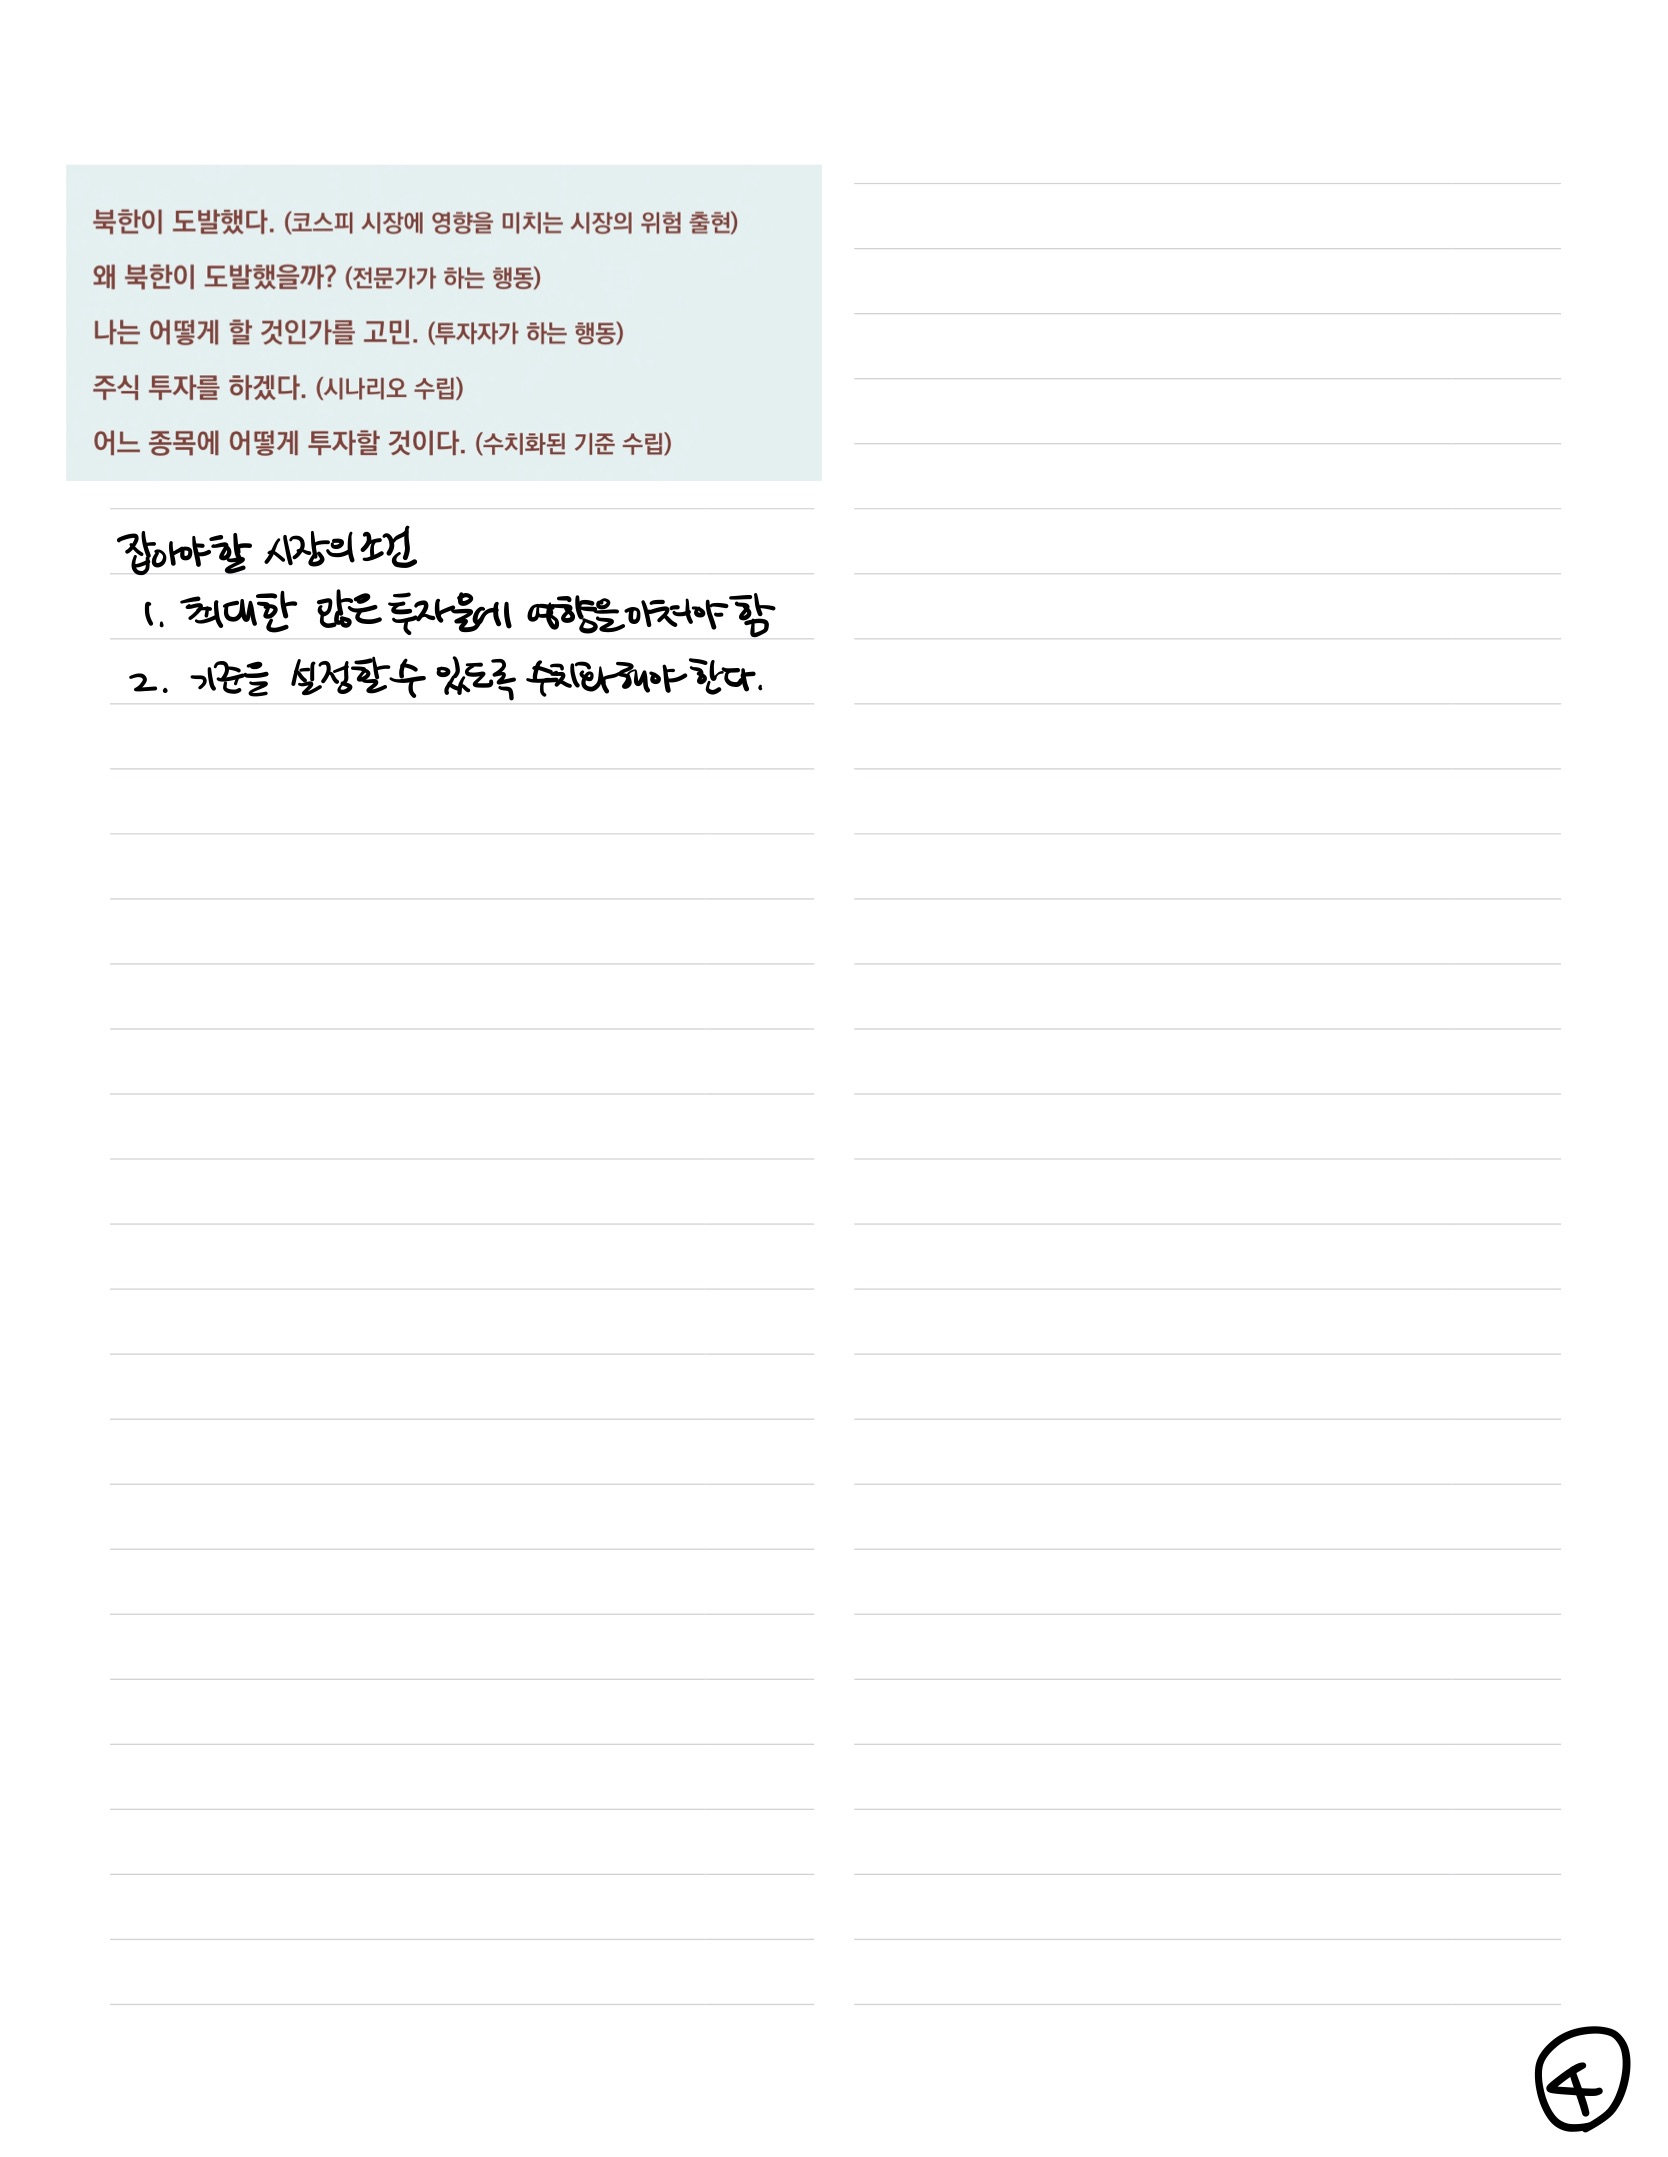 북한이 도발했다. (코스피 시장에 영향을 미치는 시장의 위험 출현)
왜 북한이 도발했을까? (전문가가 하는 행동)
나는 어떻게 할 것인가를 고민. (투자자가 하는 행동)
주식 투자를 하겠다. (시나리오 수립)
어느 종목에 어떻게 투자할 것이다. (수치화된 기준 수립)
잡아야할 시장의 조건
1. 최대한 많은 영향을 미쳐야 함
2. 기준을 설정할 수 있도록 수치화 해야 한다.
4